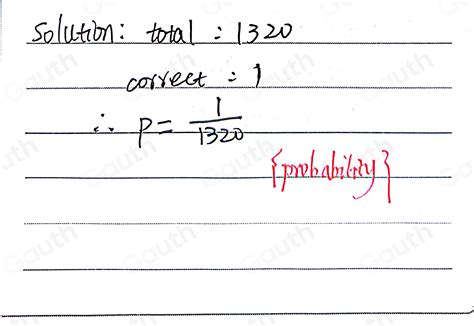 Solution: total : 1320
correct : 1
∴ P = 1/1320
{probability}